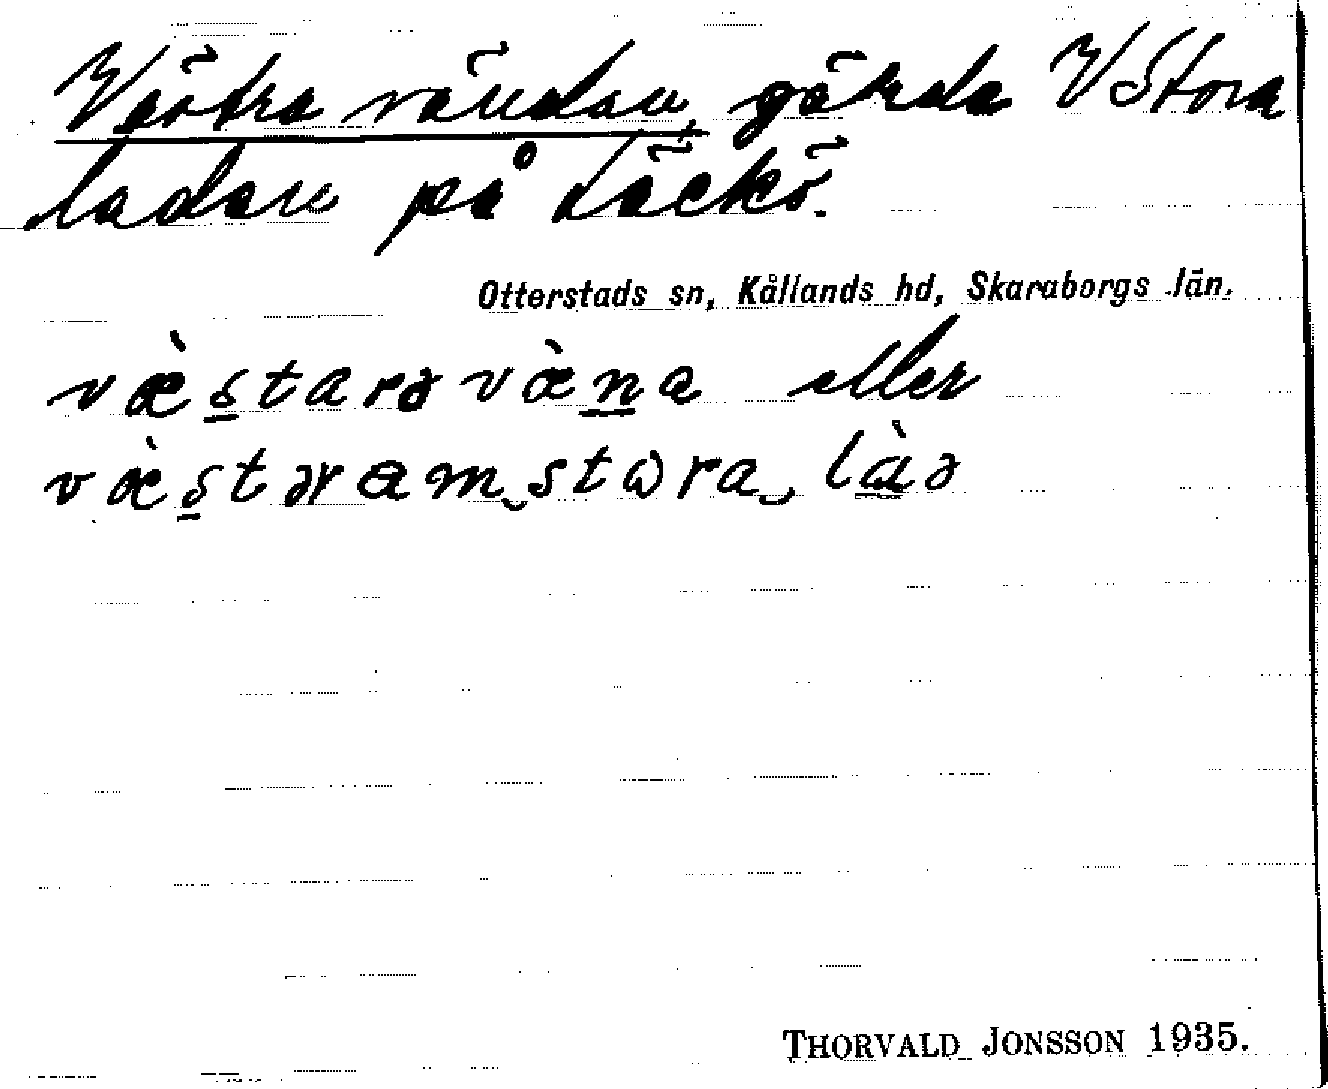 Västra vändan, gärde V Stora
ladan på Läckö.
Otterstads sn, Kållands hd, Skaraborgs län.
væ̀s̱tarə væ̀ṉa eller
væ̀s̱təram‿stɷra‿là̱ə
THORVALD JONSSON 1935.